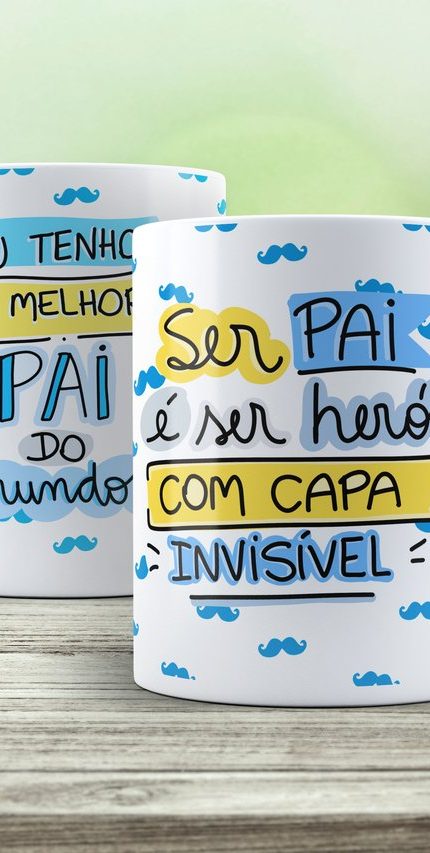 U TENHO
MELHOR
PAI
DO
mundo
Ser PAi
é ser heró
COM CAPA
INViSÍVEL